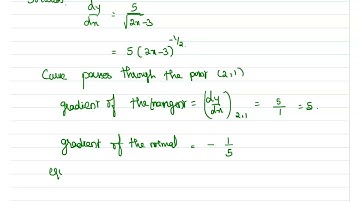 dy/dx = 5/√2x-3
= 5 (2x-3)^-1/2
Curve passes through the point (2,1)
gradient of the tangent = (dy/dx) 2,1 = 5/1 = 5.
gradient of the normal = - 1/5
eq